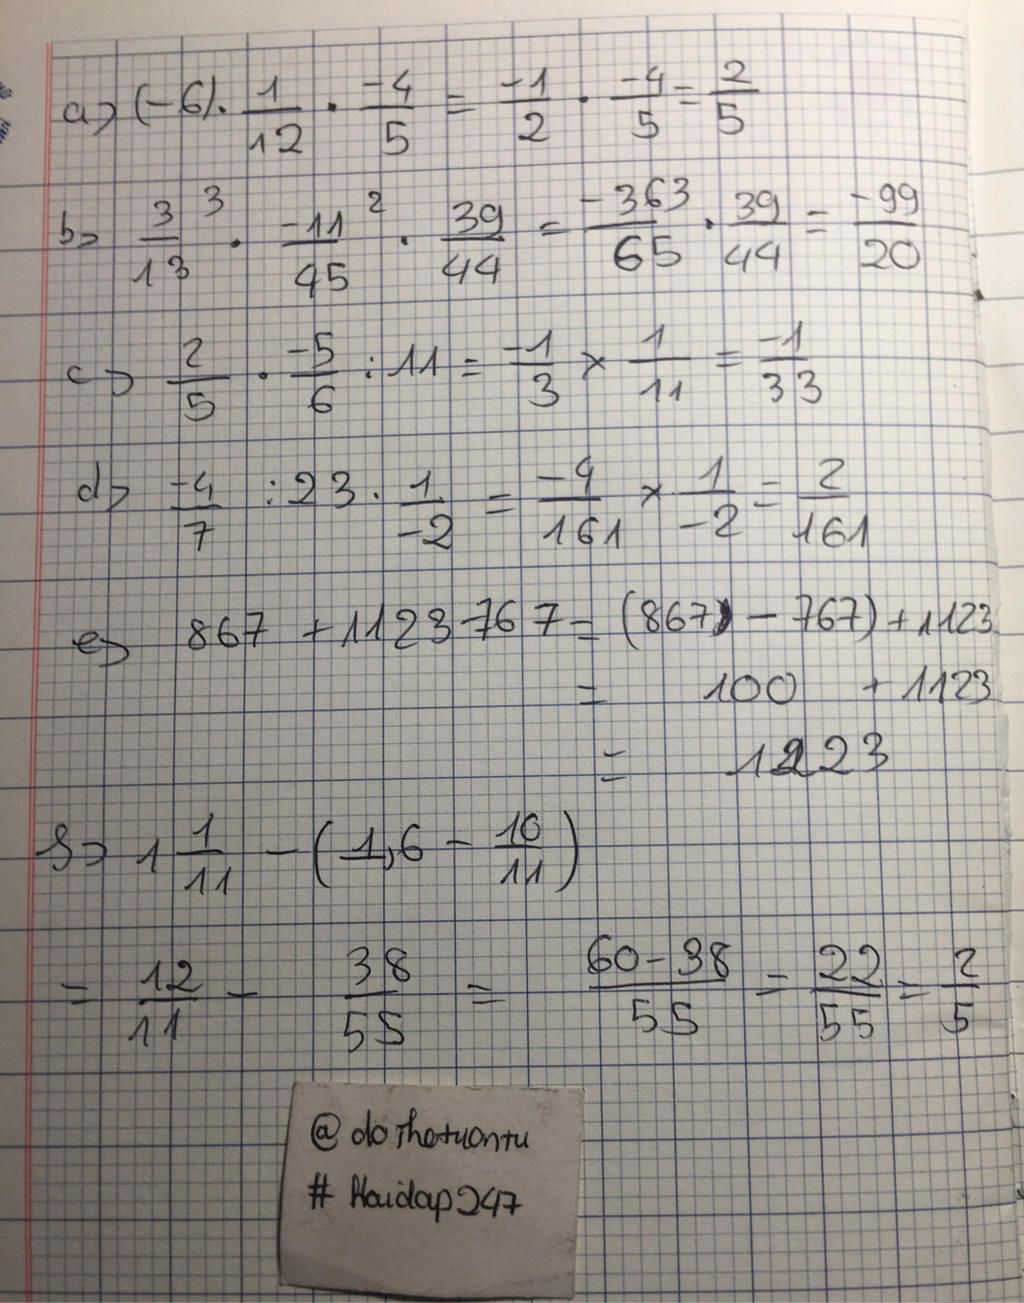 a) (-6) . 1/12 . -4/5 = -1/2 . -4/5 = 2/5
b) 3/13 ³ . -11/45 ² . 39/44 = -363/65 . 39/44 = -99/20
c) 2/5 . -5/6 : 11 = -1/3 × 1/11 = -1/33
d) -4/7 : 23 . 1/-2 = -4/161 × 1/-2 = 2/161
e) 867 + 1123 - 767 = (867) - 767) + 1123
= 100 + 1123
= 1223
f) 1 1/11 - (1,6 - 10/11)
= 12/11 - 38/55 = 60-38/55 = 22/55 = 2/5
@ dothatuantu
# Hoidap247